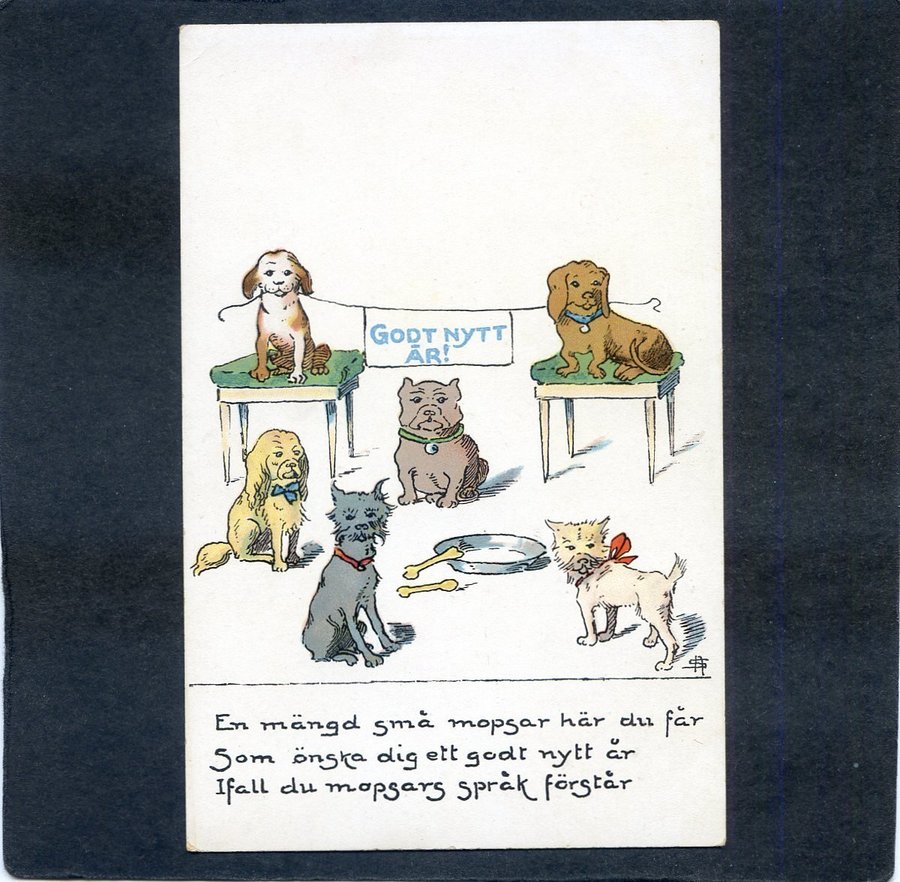 GODT NYTT
ÅR!
En mängd små mopsar här du får
Som önska dig ett godt nytt år
Ifall du mopsars språk förstår